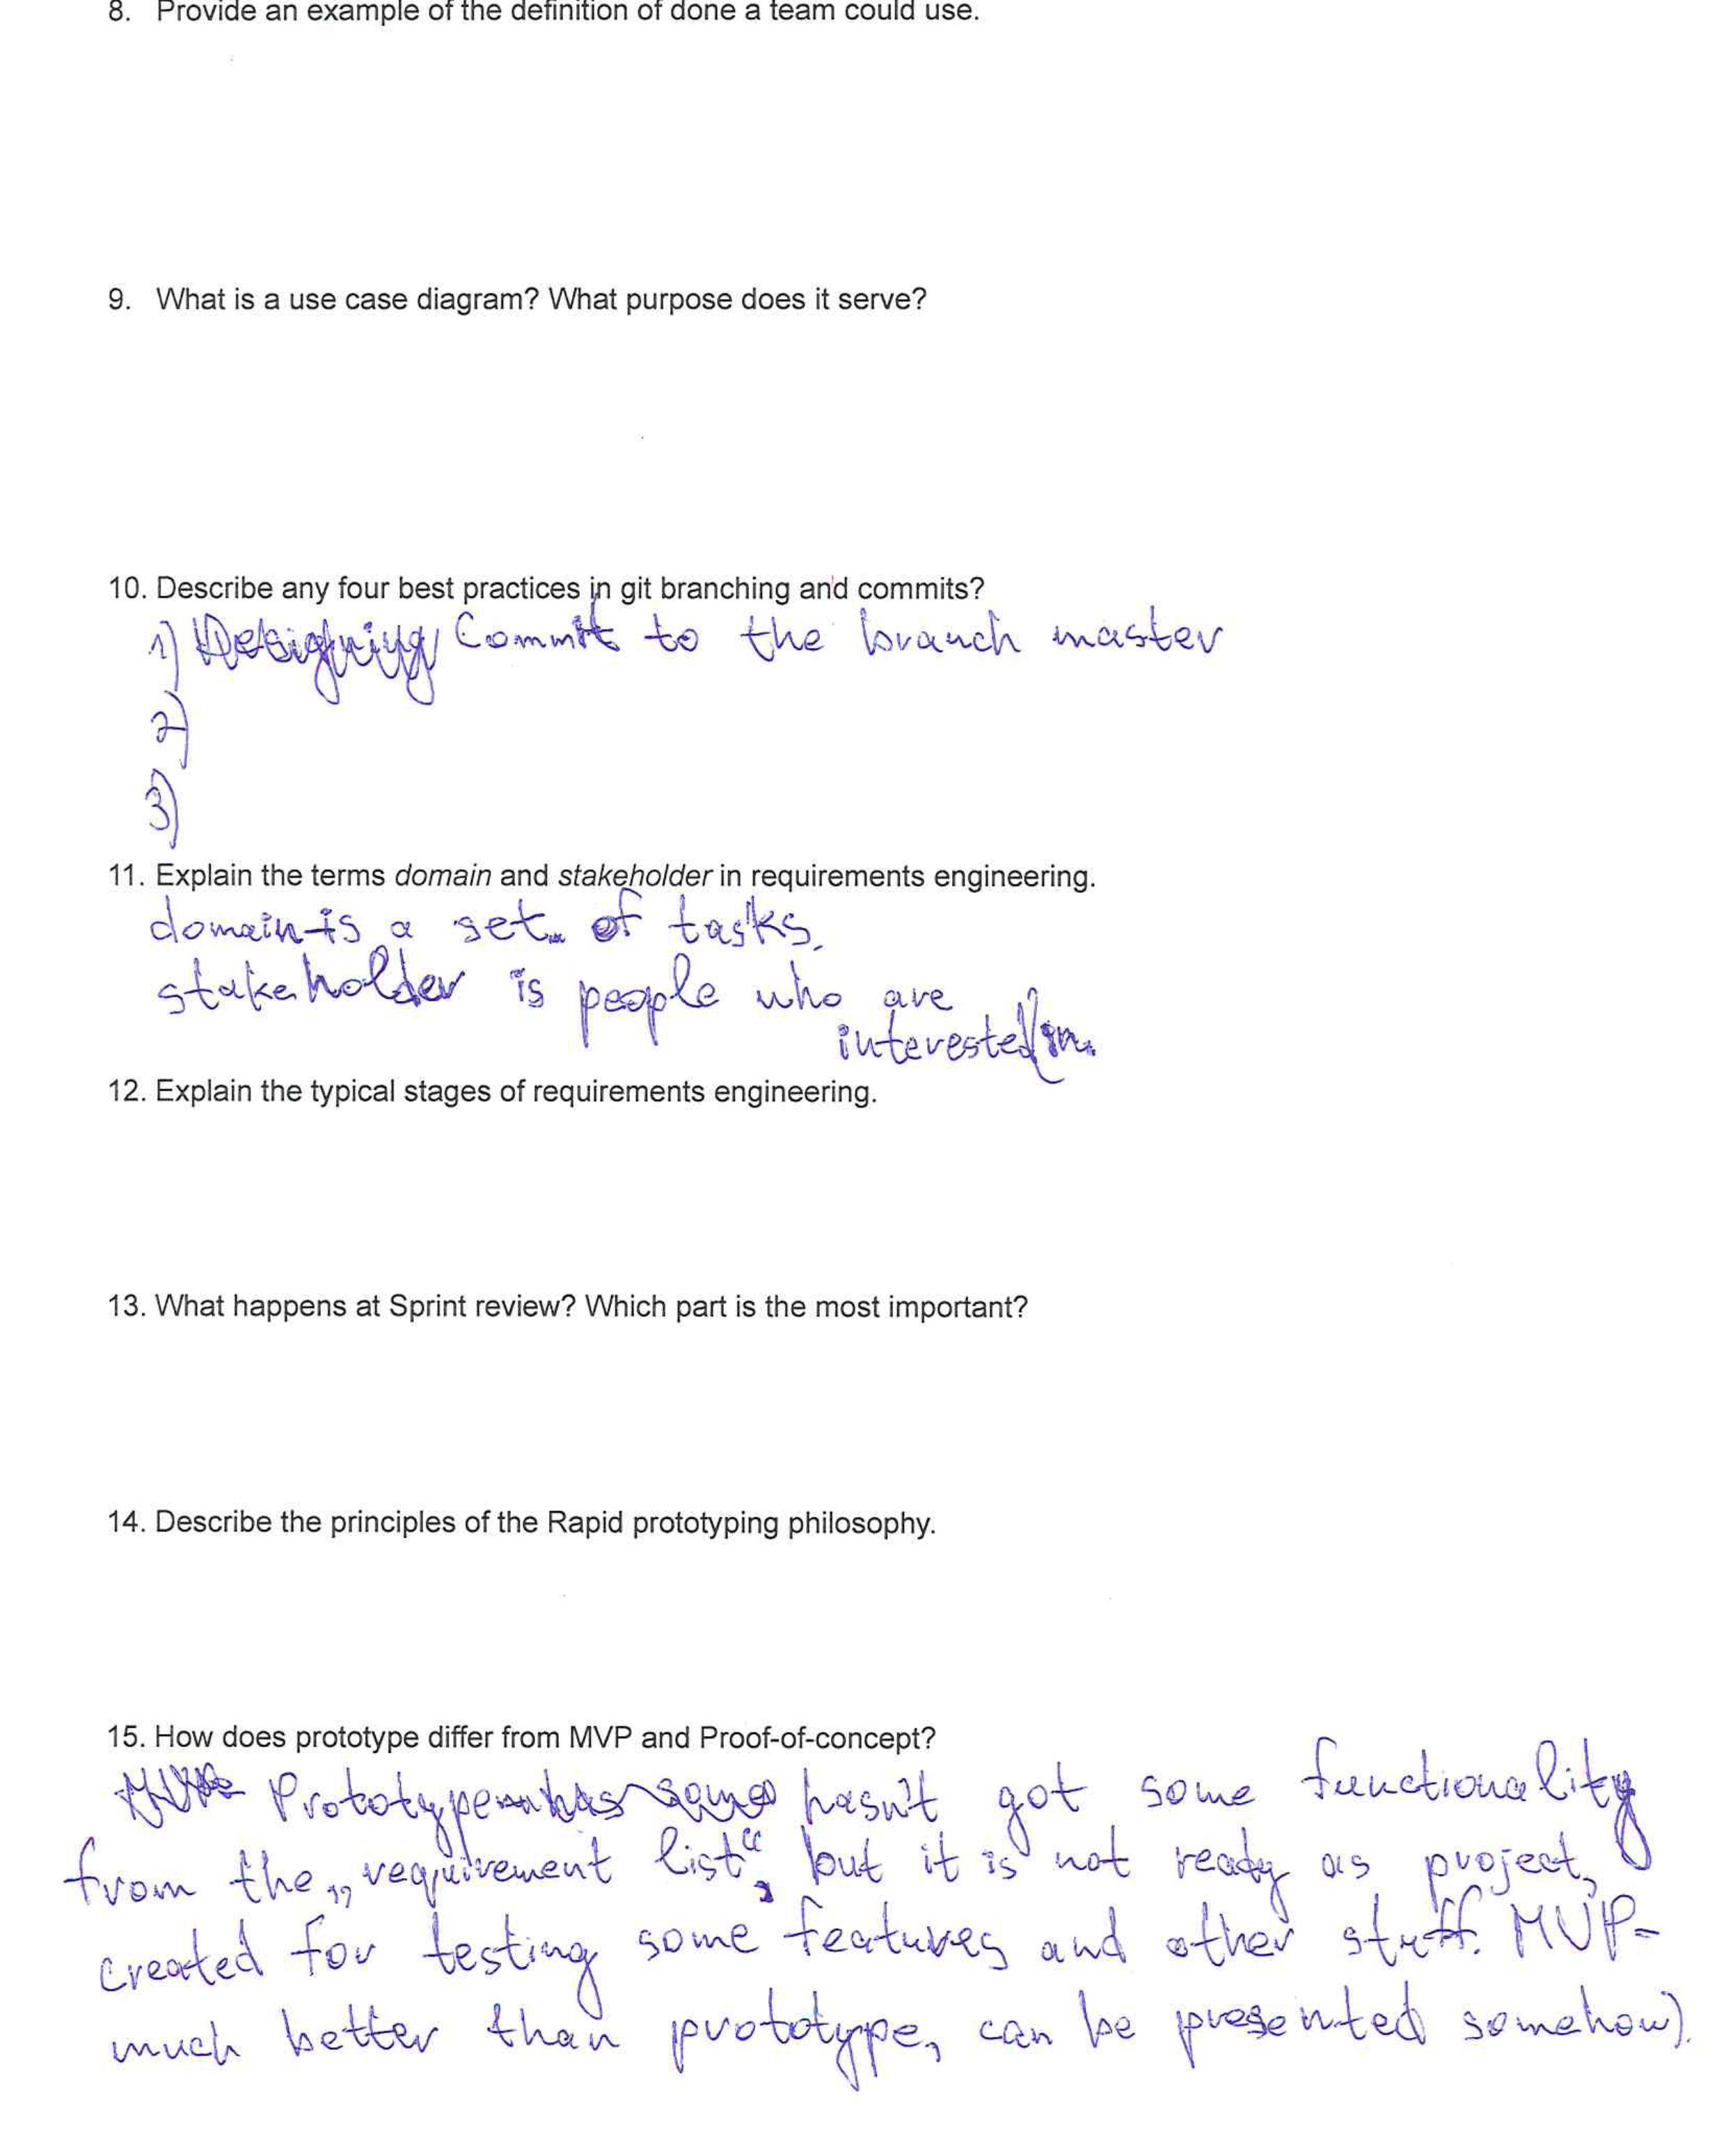 8. Provide an example of the definition of done a team could use.
9. What is a use case diagram? What purpose does it serve?
10. Describe any four best practices in git branching and commits?
1) Designing Commit to the branch master
2)
3)
11. Explain the terms domain and stakeholder in requirements engineering.
domain is a set of tasks.
stakeholder is people who are
interested in.
12. Explain the typical stages of requirements engineering.
13. What happens at Sprint review? Which part is the most important?
14. Describe the principles of the Rapid prototyping philosophy.
15. How does prototype differ from MVP and Proof-of-concept?
Prototype has some hasn't got some functionality
from the „requirement list“, but it is not ready as project,
created for testing some features and other stuff. MVP-
much better than prototype, can be presented somehow).